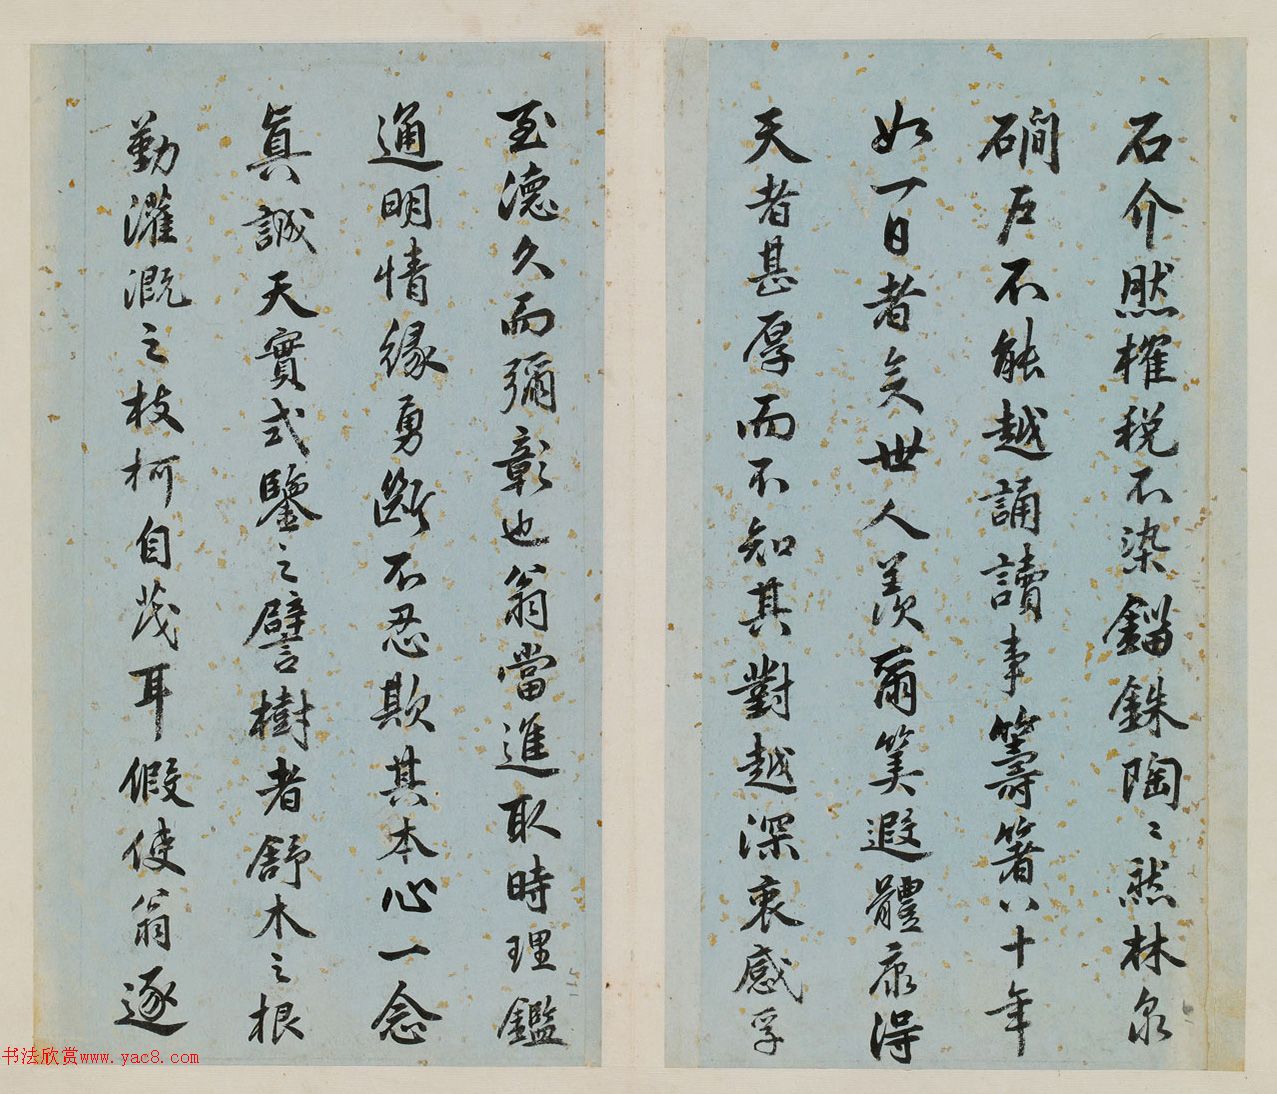 石介然榷税不染錙銖陶〻然林泉
磵戶不能越誦讀事籌箸八十年
如一日者矣世人羨爾筭遐體康得
天者甚厚而不知其對越深衷感孚
至德久而彌彰也翁當進取時理鑑
通明情緣勇斷不忍欺其本心一念
真誠天實式鑒之譬樹者舒木之根
勤灌溉之枝柯自茂耳假使翁逐
书法欣赏www.yac8.com